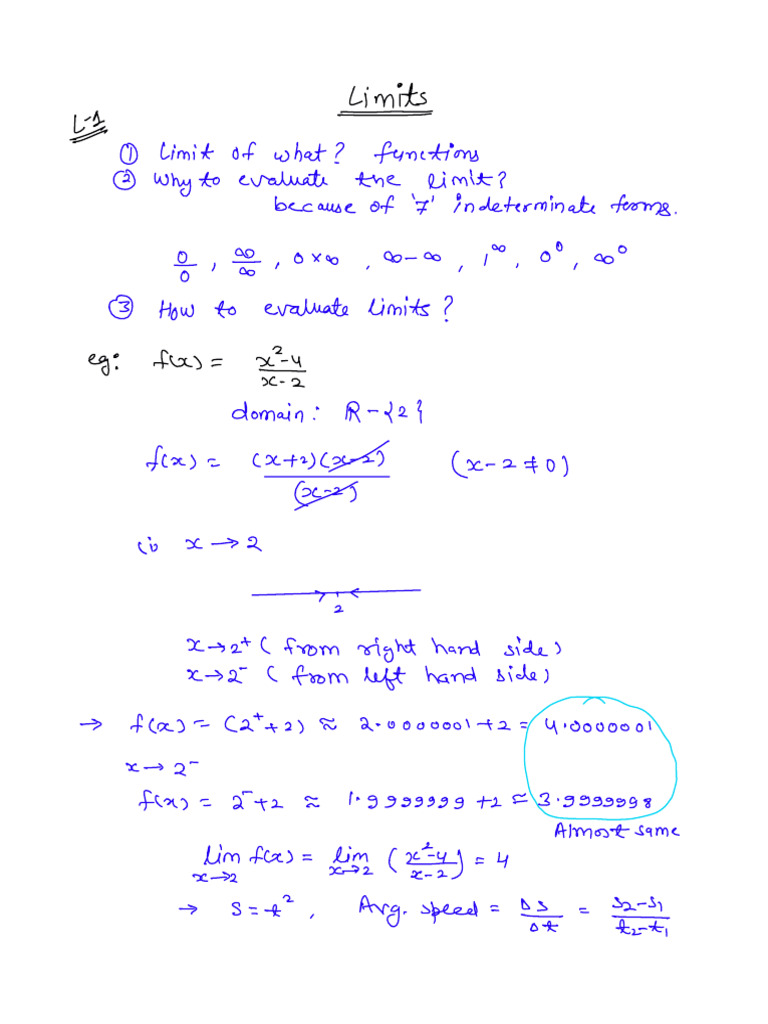 Limits
L-1
① Limit of what? functions
② Why to evaluate the limit?
because of '7' indeterminate forms.
0/0, ∞/∞, 0×∞, ∞-∞, 1^∞, 0^0, ∞^0
③ How to evaluate limits?
eg: f(x) = (x²-4)/(x-2)
domain: R-{2}
f(x) = (x+2)(x-2)/(x-2) (x-2≠0)
(i) x→2
2
x→2⁺ (from right hand side)
x→2⁻ (from left hand side)
→ f(x) = (2⁺+2) ≈ 2.0000001+2 = 4.0000001
x→2⁻
f(x) = 2⁻+2 ≈ 1.9999999+2 ≈ 3.9999998
Almost same
lim x→2 f(x) = lim x→2 ((x²-4)/(x-2)) = 4
→ S=t², Avg. speed = Δs/Δt = (s₂-s₁)/(t₂-t₁)